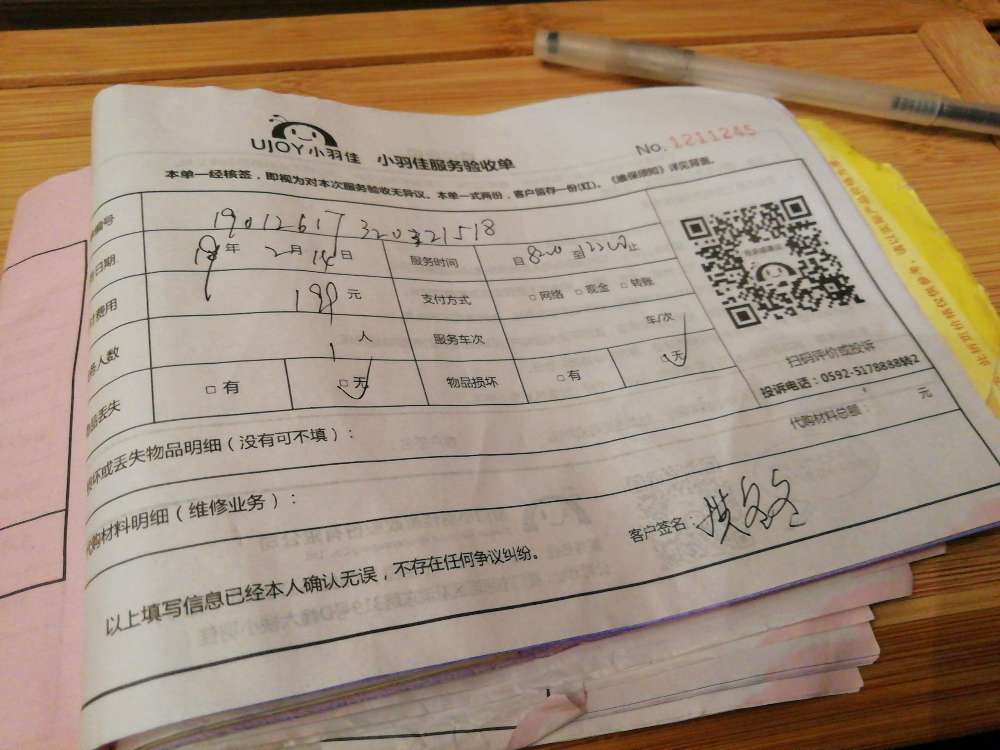 UJOY小羽佳 小羽佳服务验收单 No.1211245
本单一经核签，即视为对本次服务验收无异议。本单一式两份，客户留存一份(红)。《维保须知》详见背面。
编号 19012617320321518
日期 19年2月14日 服务时间 自820至1220止
费用 199元 支付方式 □网络 □现金 □转账
人数 1人 服务车次 车/次
品丢失 □有 □无 物品损坏 □有 □无
扫码评价或投诉
投诉电话：0592-5178888转2
损坏或丢失物品明细（没有可不填）：
代购材料明细（维修业务）： 代购材料总额： 元
以上填写信息已经本人确认无误，不存在任何争议纠纷。 客户签名：